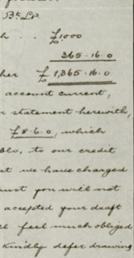 Bk Lp
h . . £1000
365.16.0
her £1,365.16.0
account current,
r statement herewith,
£8.6.0, which
Blo, to our credit
at we have charged
rust you will not
accepted your draft
ll feel much obliged
kindly defer drawing